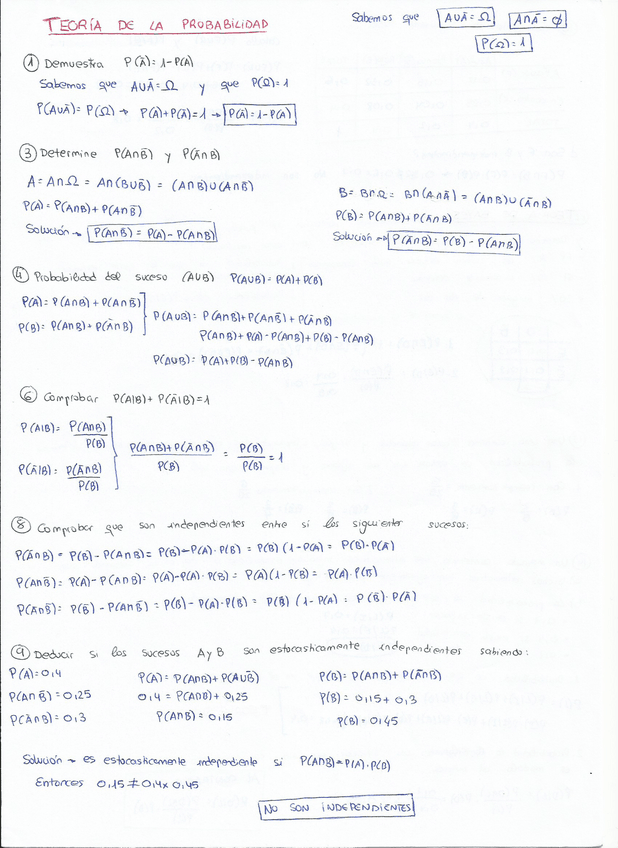 TEORÍA DE LA PROBABILIDAD
Sabemos que AUĀ=Ω A∩Ā=∅
P(Ω)=1
① Demuestra P(Ā)=1-P(A)
Sabemos que AUĀ=Ω y que P(Ω)=1
P(AUĀ)=P(Ω) → P(A)+P(Ā)=1 → P(Ā)=1-P(A)
③ Determine P(A∩B̄) y P(Ā∩B)
A= A∩Ω = A∩(BUB̄) = (A∩B)U(A∩B̄)
P(A)= P(A∩B)+P(A∩B̄)
Solución → P(A∩B̄) = P(A)-P(A∩B)
B= B∩Ω = B∩(A∩Ā) = (A∩B)U(Ā∩B)
P(B)= P(A∩B)+P(Ā∩B)
Solución → P(Ā∩B)= P(B) - P(A∩B)
④ Probabilidad del suceso (AUB) P(AUB)= P(A)+P(B)
P(A)= P(A∩B)+P(A∩B̄)
P(B)= P(A∩B)+P(Ā∩B)
P(AUB)= P(A∩B)+P(A∩B̄)+P(Ā∩B)
P(A∩B)+P(A)-P(A∩B)+P(B)-P(A∩B)
P(AUB)= P(A)+P(B)-P(A∩B)
⑥ Comprobar P(A|B)+P(Ā|B)=1
P(A|B)= P(A∩B)/P(B)
P(Ā|B)= P(Ā∩B)/P(B)
P(A∩B)+P(Ā∩B)/P(B) = P(B)/P(B) = 1
⑧ Comprobar que son independientes entre si los siguientes sucesos:
P(Ā∩B) = P(B)-P(A∩B)= P(B)-P(A)·P(B)= P(B)(1-P(A)= P(B)·P(Ā)
P(A∩B̄)= P(A)-P(A∩B)= P(A)-P(A)·P(B)= P(A)(1-P(B)= P(A)·P(B̄)
P(Ā∩B̄)= P(B̄)-P(A∩B̄) = P(B̄)-P(A)·P(B̄)= P(B̄)(1-P(A)= P(B̄)·P(Ā)
⑨ Deducir si los sucesos A y B son estocasticamente independientes sabiendo:
P(A)=0,4
P(A∩B̄)=0,25
P(Ā∩B)=0,3
P(A)= P(A∩B)+P(AUB̄)
0,4= P(A∩B)+0,25
P(A∩B)= 0,15
P(B)= P(A∩B)+P(Ā∩B)
P(B)= 0,15+0,3
P(B)= 0,45
Solución → es estocasticamente independiente si P(A∩B)=P(A)·P(B)
Entonces 0,15≠0,4x0,45
NO SON INDEPENDIENTES